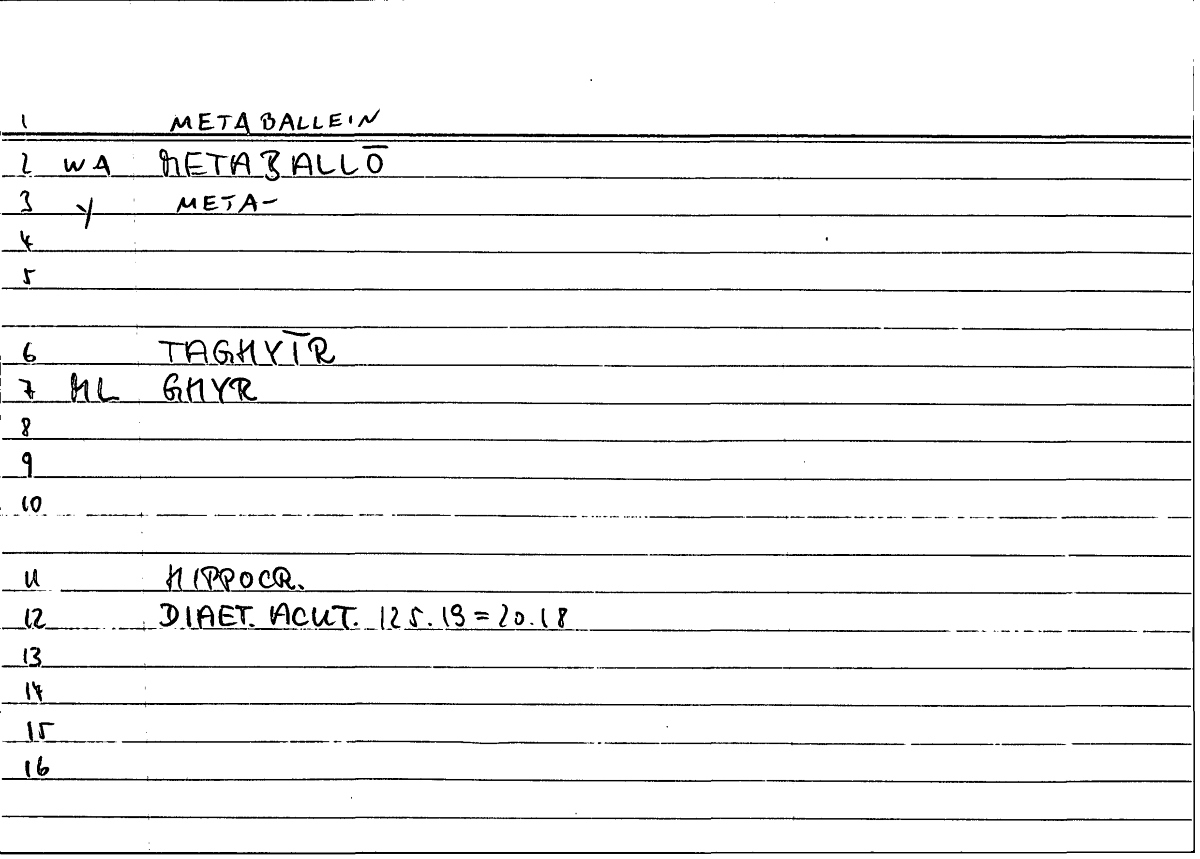 1 METABALLEIN
2 WA METABALLŌ
3 Y META-
4
5
6 TAGHYĪR
7 ML GHYR
8
9
10
11 HIPPOCR.
12 DIAET. ACUT. 125.19=20.18
13
14
15
16